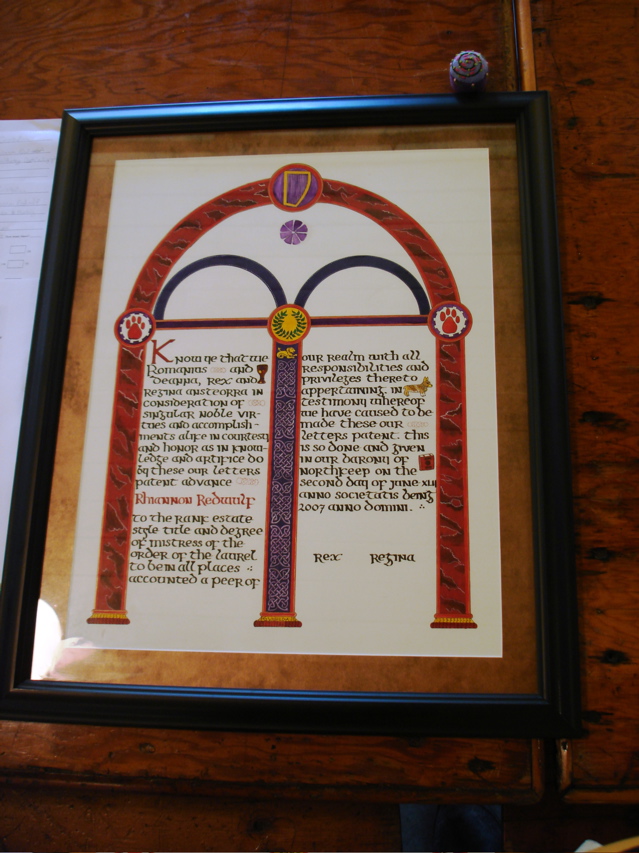 Know ye that we
Romanius and
Deanna, Rex and
Regina Ansteorra in
consideration of
singular noble vir-
tues and accomplish-
ments alike in courtesy
and honor as in know-
ledge and artifice do
by these our letters
patent advance
Rhiannon Redwulf
to the rank estate
style title and degree
of mistress of the
order of the laurel
to be in all places :
accounted a peer of
our realm with all
responsibilities and
privileges thereto
appertaining. In
testimony whereof
we have caused to be
made these our
letters patent. This
is so done and given
in our barony of
Northkeep on the
second day of June XLII
anno societatis being
2007 anno domini. :
Rex Regina